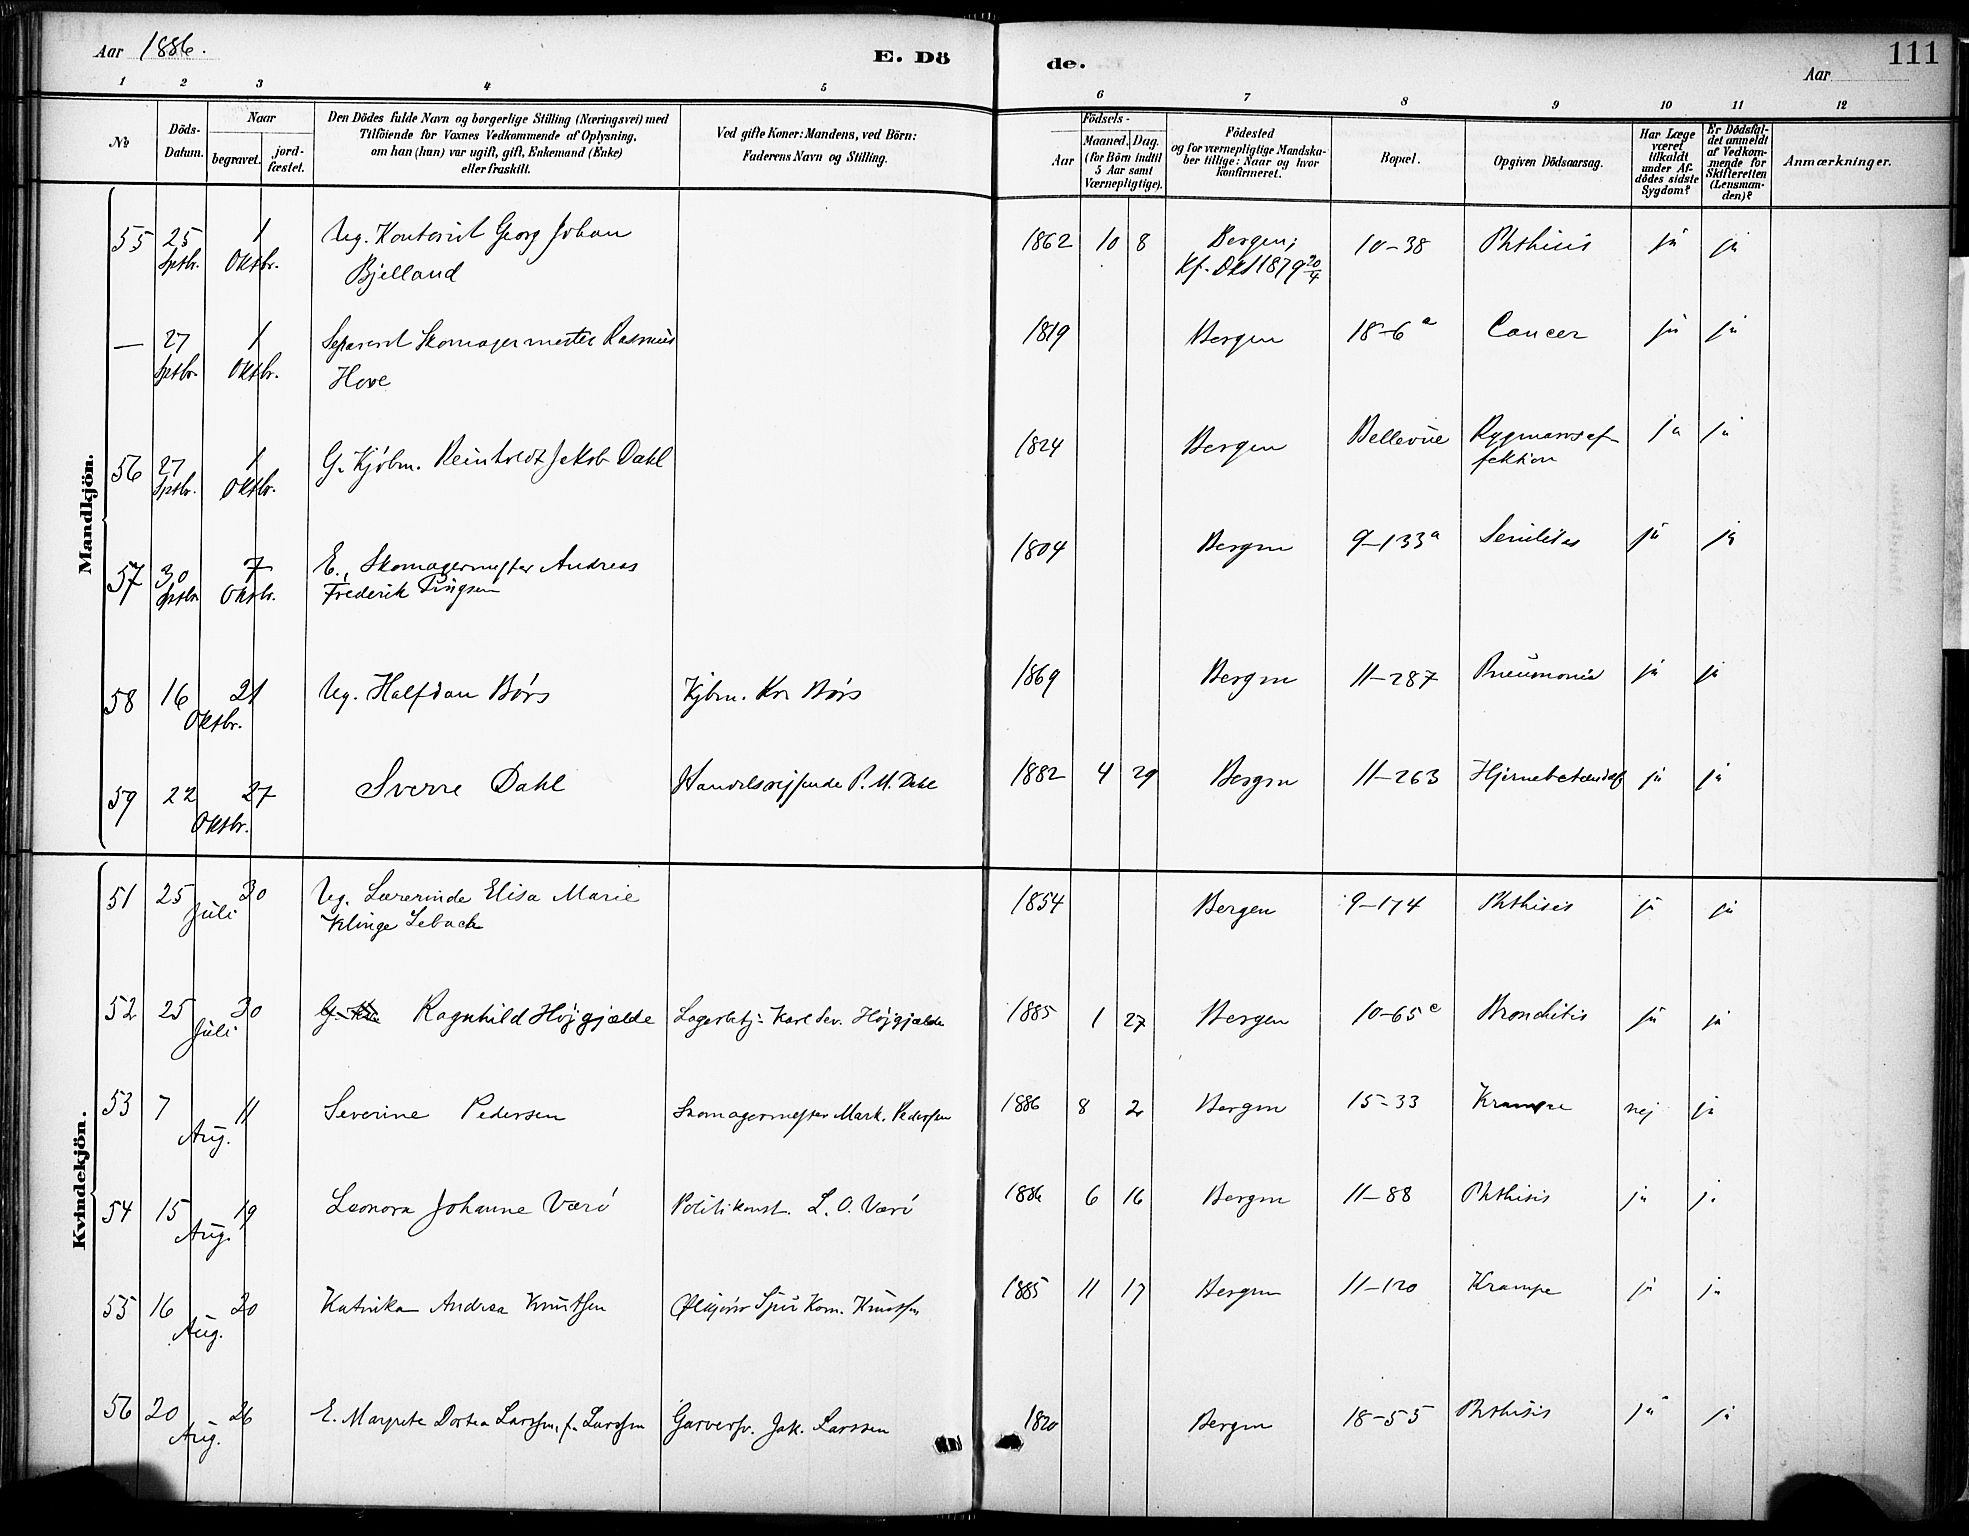 Aar 1886.
E. Dö
de.
Aar
111
1 2 3 4 5 6 7 8 9 10 11 12
No
Döds-Datum.
Naar
begravet.
jord-fæstet.
Den Dödes fulde Navn og borgerlige Stilling (Næringsvei) med
Tilföiende for Voxnes Vedkommende af Oplysning,
om han (hun) var ugift, gift, Enkemand (Enke)
eller fraskilt.
Ved gifte Koner: Mandens, ved Börn:
Faderens Navn og Stilling.
Födsels-
Aar
Maaned.
Dag.
(for Börn indtil
5 Aar samt
Værnepligtige).
Födested
og for værnepligtige Mandska-
ber tillige: Naar og hvor
konfirmeret.
Bopæl.
Opgiven Dödsaarsag.
Har Læge
været
tilkaldt
under Af-
dödes sidste
Sygdom?
Er Dödsfal-
det anmeldt
af Vedkom-
mende for
Skifteretten
(Lensman-
den)?
Anmærkninger.
Mandkjön.
55 25 1 Ug. Kontorist Georg Johan 1862 10 8 Bergen; 10-38 Phthisis ja ja
Sptbr. Oktbr. Bjelland Kf. Dkf 1879 20/4
— 27 1 Separeret Skomagermester Rasmus 1819 Bergen 18-6a Cancer ja ja
Sptbr. Oktbr. Hove
56 27 1 G. Kjöbm. Reinholdt Jakob Dahl 1824 Bergen Bellevue Rygmarvsaf- ja ja
Sptbr. Oktbr. fektion
57 30 7 E., Skomagermester Andreas 1804 Bergen 9-133a Senilitas ja ja
Sptbr. Oktbr. Frederik
58 16 21 Ug. Halfdan Börs Kjbm. Kr. Börs 1869 Bergen 11-287 Pneumonia ja ja
Oktbr.
59 22 27 Sverre Dahl Handelsrejsende P. M. Dahl 1882 4 29 Bergen 11-263 ja ja
Oktbr.
Kvindekjön.
51 25 30 Ug. Lærerinde Elisa Marie 1854 Bergen 9-174 Phthisis ja ja
Juli Klinge Lebach
52 25 30 Ragnhild Höjgjælde Karl Sev. Höjgjælde 1885 1 27 Bergen 10-65c Bronchitis ja ja
Juli
53 7 11 Severine Pedersen Skomagermester Mark. Pederssen 1886 8 2 Bergen 15-33 Krampe nej ja
Aug.
54 15 19 Leonora Johanne Værö Politikonst. L. O. Værö 1886 6 16 Bergen 11-88 Phthisis ja ja
Aug.
55 16 20 Katinka Andrea Knutsen Kom. Knutsen 1885 11 17 Bergen 11-120 Krampe ja ja
Aug.
56 20 26 E. Margrete Dortea Larssen, f. Larssen Garversv. Jak. Larssen 1820 Bergen 18-55 Phthisis ja ja
Aug.